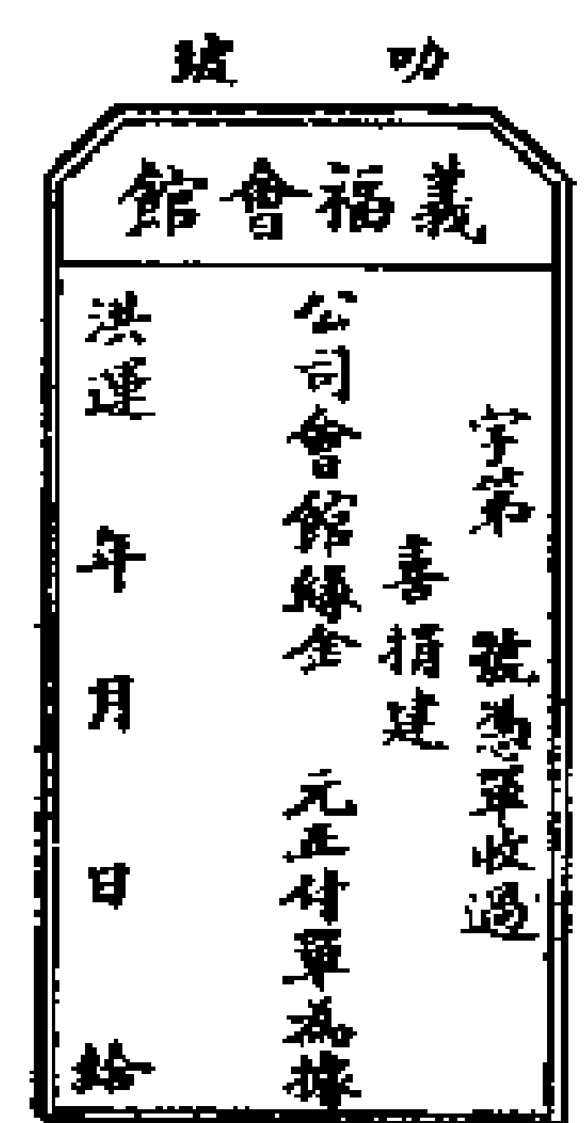 叻 坡
義福會館
字第 號憑單收過
喜捐建
公司會館緣金 元正付單為據
洪運 年 月 日 給